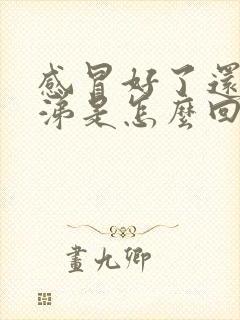 感冒好了還
涕是怎麼回
畫九卿